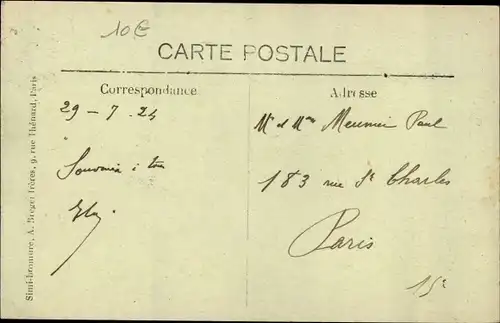 10€
CARTE POSTALE
Correspondance
Adresse
29 - 7 - 24
Souvenir à tous
Mr et Mme Meunier Paul
183 rue St Charles
Paris
15e
Simi-bromure, A. Breger frères, 9, rue Thénard, Paris